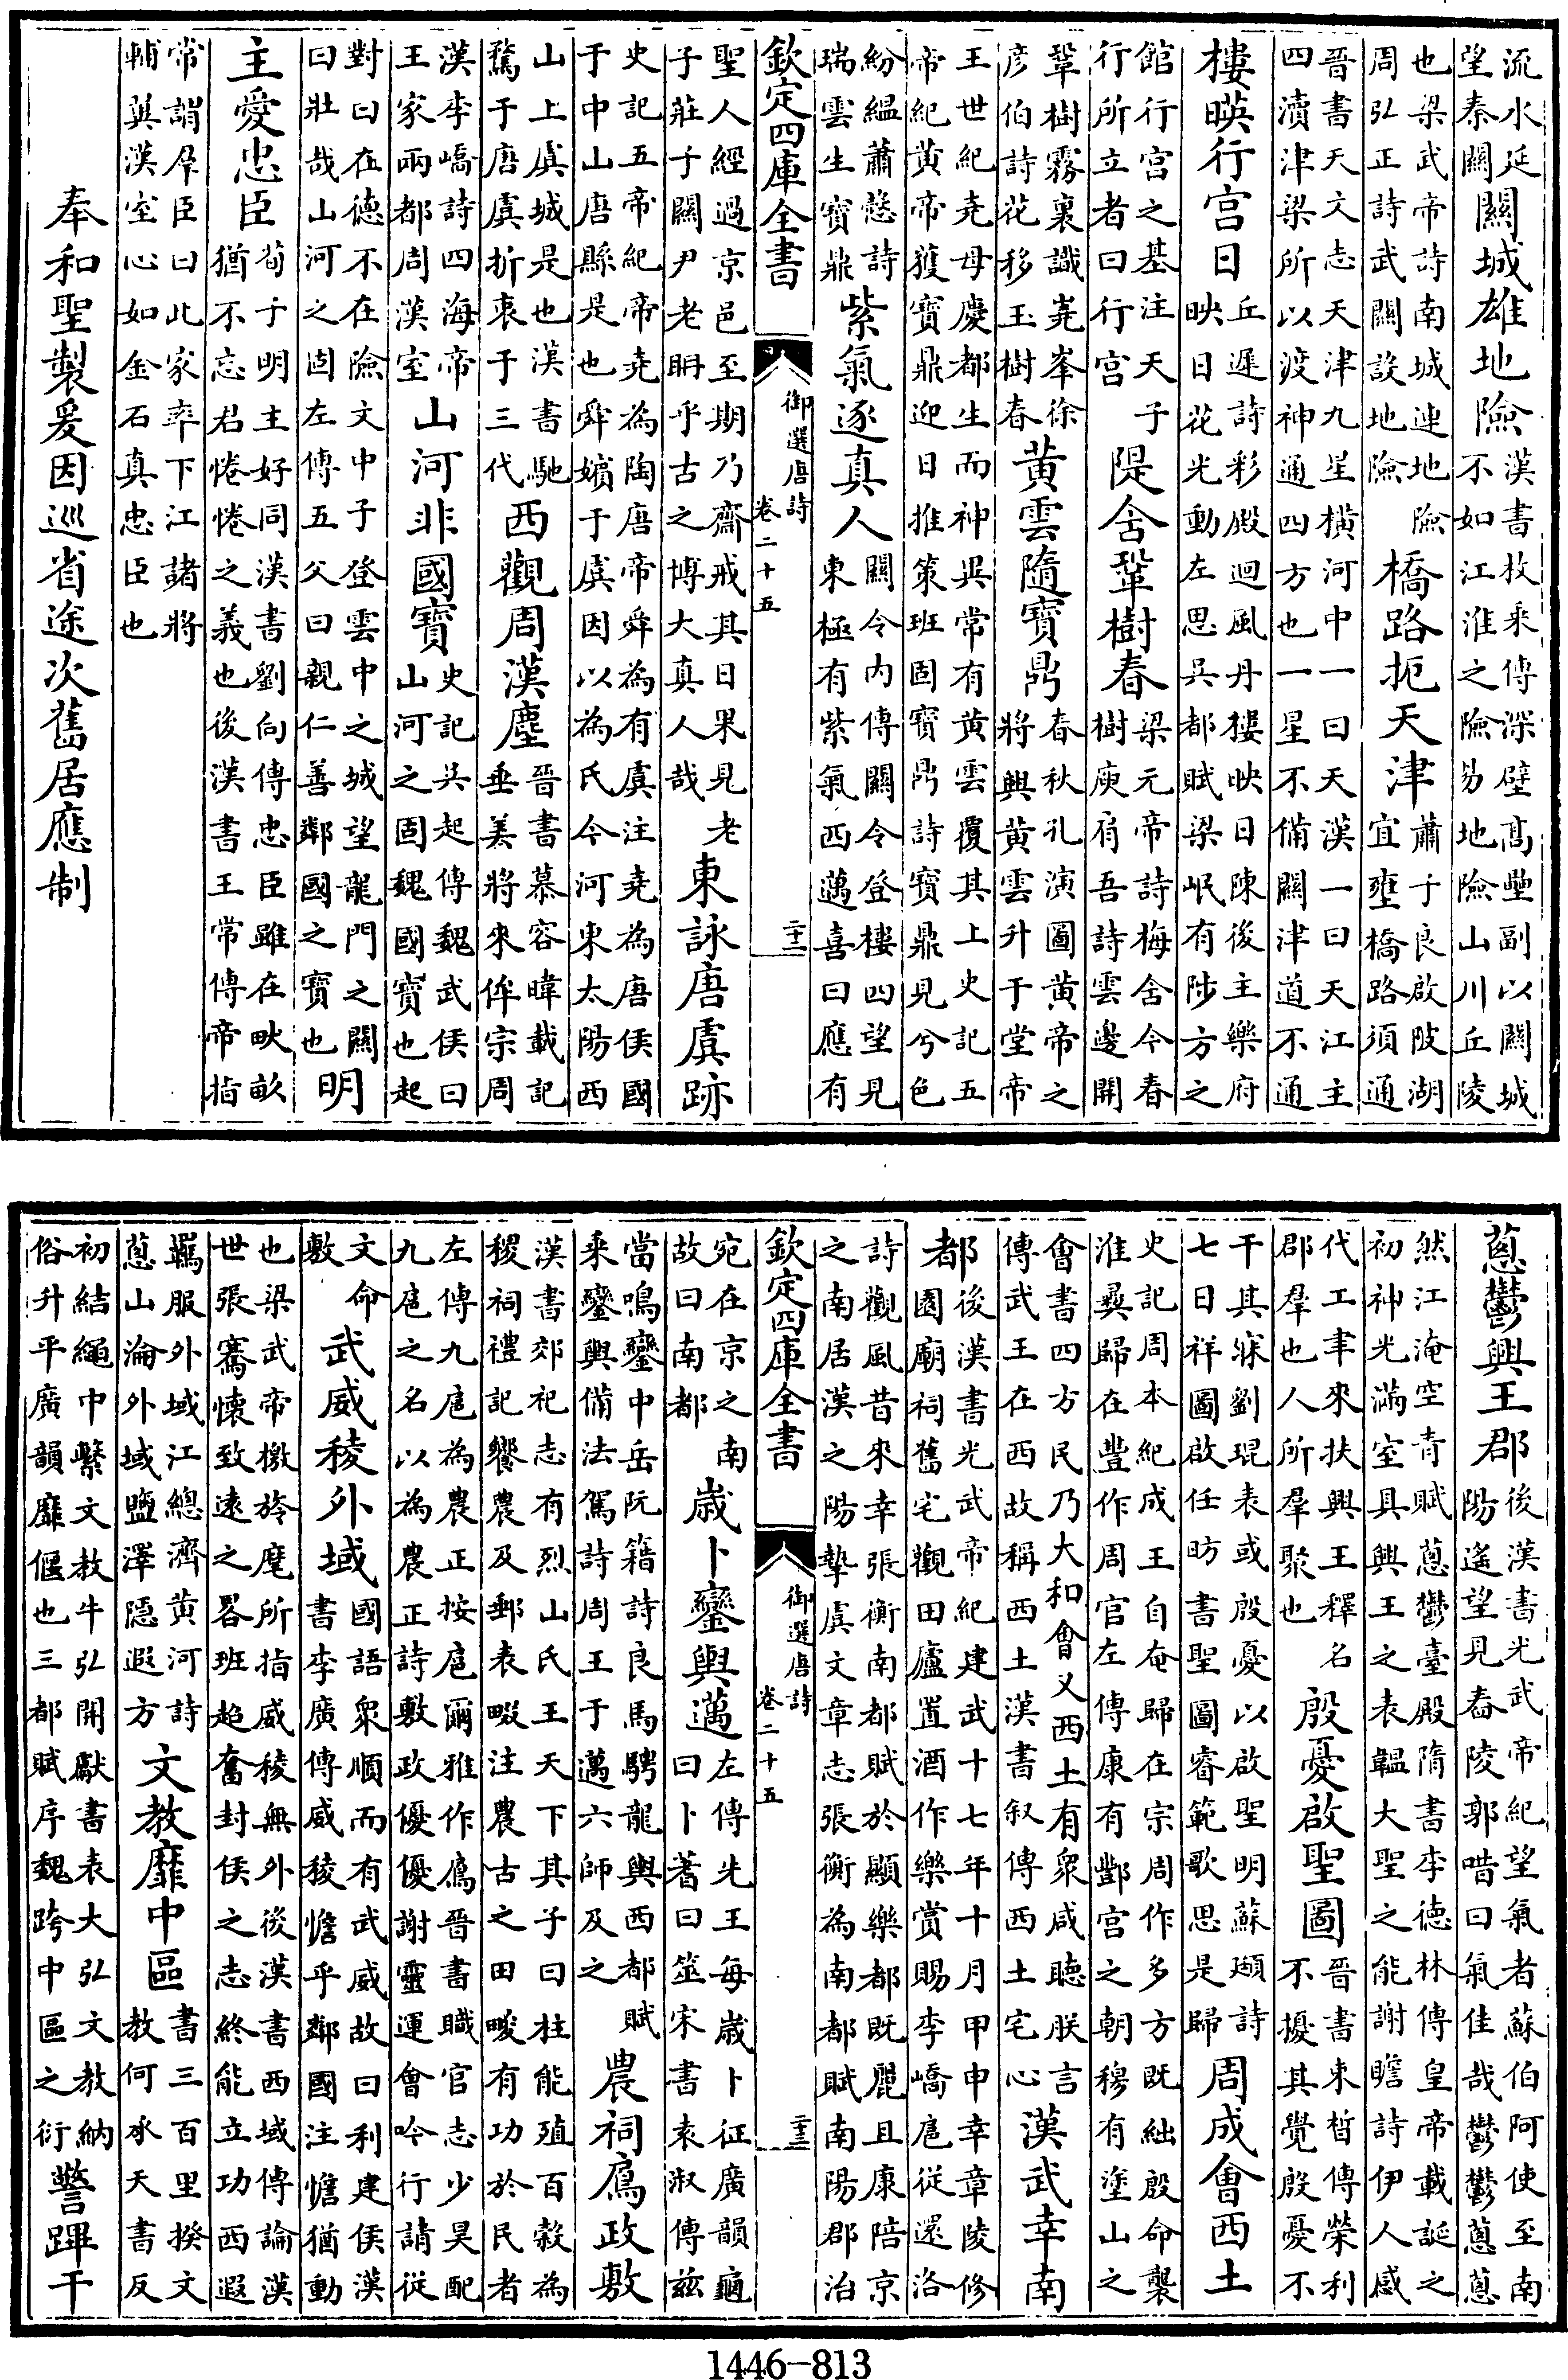 流水延望秦關關城雄地險漢書枚乗傳深壁髙壘副以關城不如江淮之險易地險山川丘陵
也梁武帝詩南城連地險周弘正詩武關設地險橋路扼天津蕭子良啟陂湖宜壅橋路須通
晉書天文志天津九星橫河中一曰天漢一曰天江主四瀆津梁所以渡神通四方也一星不備關津道不通
樓暎行宫日丘遲詩彩殿迴風丹樓映日陳後主樂府映日花光動左思吳都賦梁岷有陟方之
館行宫之基注天子行所立者曰行宫隄含鞏樹春梁元帝詩梅含今春樹庾肩吾詩雲邊開
鞏樹霧裏識嶤峯徐彦伯詩花移玉樹春黄雲隨寶鼎春秋孔演圖黄帝之將興黄雲升于堂帝
王世紀尭母慶都生而神異常有黄雲覆其上史記五帝紀黄帝獲寶鼎迎日推策班固寶鼎詩寶鼎見兮色
紛緼蕭慤詩瑞雲生寶鼎紫氣逐真人關令内傳關令登樓四望見東極有紫氣西邁喜曰應有
欽定四庫全書 御選唐詩 卷二十五 二十二
聖人經過京邑至期乃齋戒其日果見老子莊子關尹老耼乎古之博大真人哉東詠唐虞跡
史記五帝紀帝尭為陶唐帝舜為有虞注尭為唐侯國于中山唐縣是也舜嬪于虞因以為氏今河東太陽西
山上虞城是也漢書馳騖于唐虞折衷于三代西觀周漢塵晉書慕容暐載記垂美將來侔宗周
漢李嶠詩四海帝王家兩都周漢室山河非國寶史記吳起傳魏武侯曰山河之固魏國寶也起
對曰在德不在險文中子登雲中之城望龍門之關曰壯哉山河之固左傳五父曰親仁善鄰國之寶也明
主愛忠臣荀子明主好同漢書劉向傳忠臣雖在畎畝猶不忘君惓惓之義也後漢書王常傳帝指
常誚羣臣曰此家率下江諸將輔翼漢室心如金石真忠臣也
奉和聖製爰因巡省途次舊居應制
蔥鬱興王郡後漢書光武帝紀望氣者蘇伯阿使至南陽遙望見舂陵郭唶曰氣佳哉鬱鬱蔥蔥
然江淹空青賦蔥鬱臺殿隋書李德林傳皇帝載誕之初神光滿室具興王之表韞大聖之能謝瞻詩伊人感
代工聿來扶興王釋名郡羣也人所羣聚也殷憂啟聖圖晉書束晳傳榮利不擾其覺殷憂不
干其寐劉琨表或殷憂以啟聖明蘇頲詩七日祥圖啟任昉書聖圖睿範歌思是歸周成會西土
史記周本紀成王自奄歸在宗周作多方既絀殷命襲淮夷歸在豐作周官左傳康有酆宫之朝穆有塗山之
會書四方民乃大和會又西土有衆咸聴朕言傳武王在西故稱西土漢書叙傳西土宅心漢武幸南
都後漢書光武帝紀建武十七年十月甲申幸章陵修園廟祠舊宅觀田廬置酒作樂賞賜李嶠扈從還洛
詩觀風昔來幸張衡南都賦於顯樂都既麗且康陪京之南居漢之陽摯虞文章志張衡為南都賦南陽郡治
欽定四庫全書 御選唐詩 卷二十五 二十三
宛在京之南故曰南都歲卜鑾輿邁左傳先王每歲卜征廣韻龜曰卜蓍曰筮宋書袁淑傳兹
當鳴鑾中岳阮籍詩良馬騁龍輿西都賦乗鑾輿備法駕詩周王于邁六師及之農祠鳸政敷
漢書郊祀志有烈山氏王天下其子曰柱能殖百穀為稷祠禮記饗農及郵表畷注農古之田畯有功於民者
左傳九扈為農正按扈爾雅作鳸晉書職官志少昊配九扈之名以為農正詩敷政優優謝靈運會吟行請從
文命敷武威稜外域國語衆順而有武威故曰利建侯漢書李廣傳威稜憺乎鄰國注憺猶動
也梁武帝檄旍麾所指威稜無外後漢書西域傳論漢世張騫懷致遠之畧班超奮封侯之志終能立功西遐
羈服外域江總濟黄河詩蔥山淪外域鹽澤隠遐方文教靡中區書三百里揆文教何承天書反
初結繩中繫文教牛弘開獻書表大弘文教納俗升平廣韻靡偃也三都賦序魏跨中區之衍警蹕干
1446-813